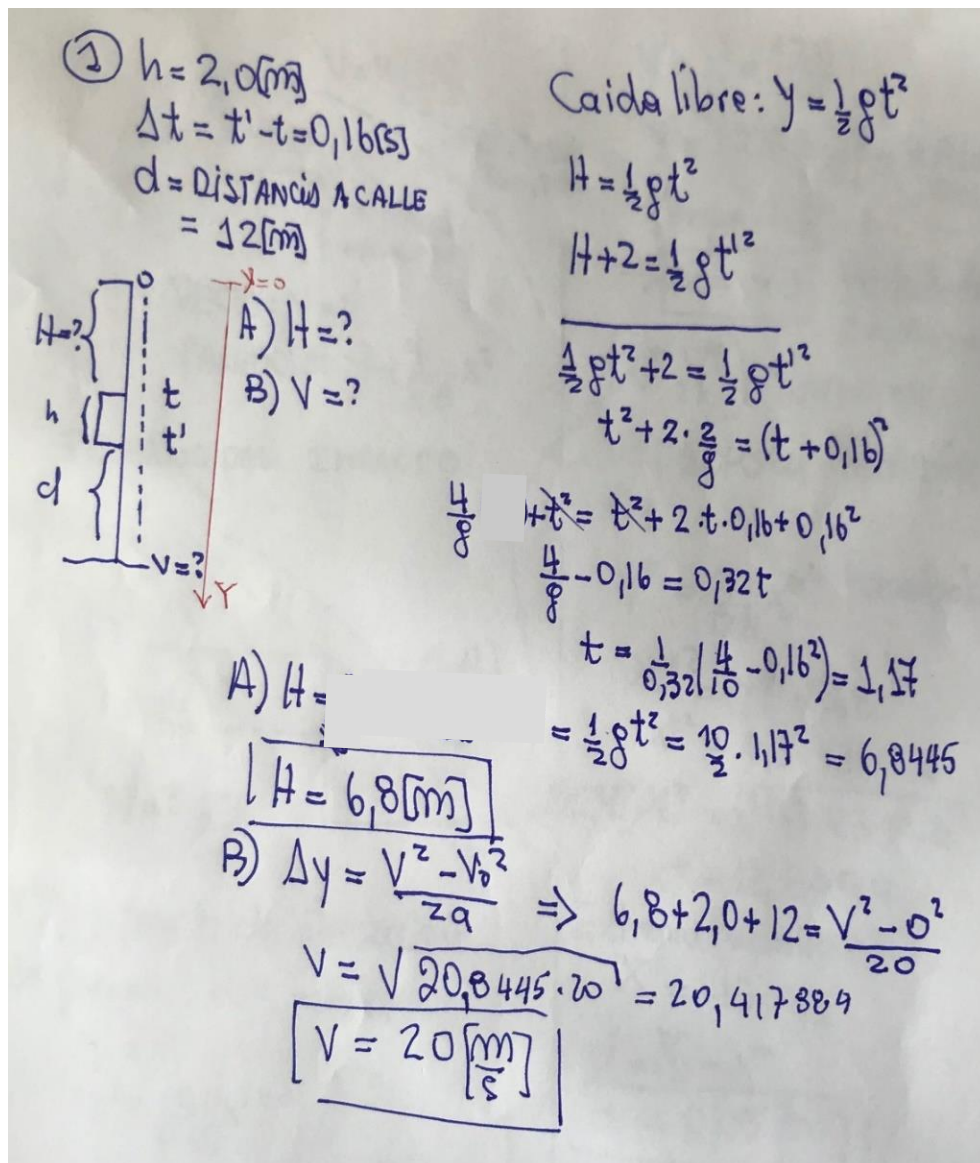 ① h = 2,0[m]
Δt = t'-t = 0,16[s]
d = DISTANCIA A CALLE
= 12[m]
H=?
h
d
t
t'
V=?
y=0
Y
A) H = ?
B) V = ?
Caida libre: y = ½gt²
H = ½gt²
H+2 = ½gt'²
½gt²+2 = ½gt'²
t²+2·2/g = (t+0,16)²
4/g +t² = t²+2·t·0,16+0,16²
4/g - 0,16 = 0,32t
t = 1/0,32(4/10 - 0,16²) = 1,17
A) H =
= ½gt² = 10/2 · 1,17² = 6,8445
H = 6,8[m]
B) Δy = V² - V₀² / 2a ⇒ 6,8+2,0+12 = V² - 0² / 20
V = √20,8445·20 = 20,417884
V = 20[m/s]